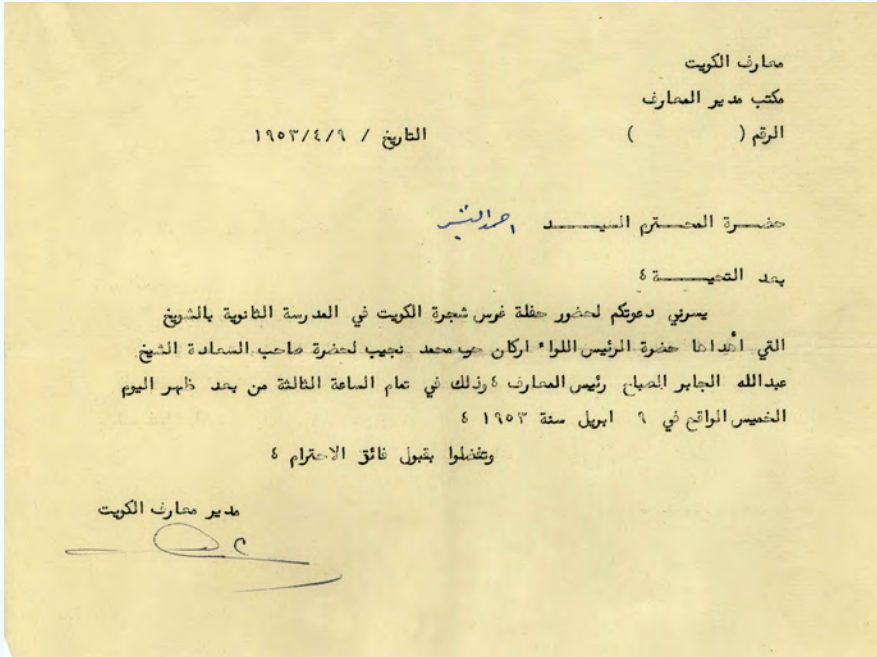 معارف الكويت
مكتب مدير المعارف
الرقم (            )            التاريخ / ١٩٥٣/٤/٩
حضـــرة المحـــترم السيـــــــد احمد البشر
بعد التحيـــــــة ٤
يسرني دعوتكم لحضور حفلة غرس شجرة الكويت في المدرسة الثانوية بالشويخ
التي أهداها حضرة الرئيس اللواء اركان حرب محمد نجيب لحضرة صاحب السعادة الشيخ
عبدالله الجابر الصباح رئيس المعارف ٤ وذلك في تمام الساعة الثالثة من بعد ظهر اليوم
الخميس الواقع في ٩ ابريل سنة ١٩٥٣ ٤
وتفضلوا بقبول فائق الاحترام ٤
مدير معارف الكويت